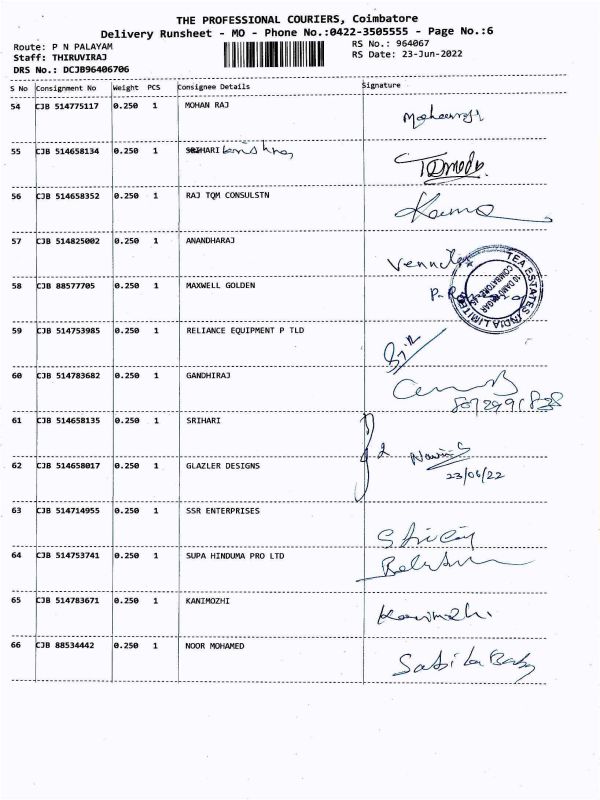 THE PROFESSIONAL COURIERS, Coimbatore
Delivery Runsheet - MO - Phone No.:0422-3505555 - Page No.:6
Route: P N PALAYAM RS No.: 964067
Staff: THIRUVIRAJ RS Date: 23-Jun-2022
DRS No.: DCJB96406706
S No Consignment No Weight PCS Consignee Details Signature
54 CJB 514775117 0.250 1 MOHAN RAJ
55 CJB 514658134 0.250 1 SRIHARI
56 CJB 514658352 0.250 1 RAJ TQM CONSULSTN
57 CJB 514825002 0.250 1 ANANDHARAJ
58 CJB 88577705 0.250 1 MAXWELL GOLDEN
TEA ESTATES INDIA LIMITED
59 CJB 514753985 0.250 1 RELIANCE EQUIPMENT P TLD
60 CJB 514783682 0.250 1 GANDHIRAJ
61 CJB 514658135 0.250 1 SRIHARI
62 CJB 514658017 0.250 1 GLAZLER DESIGNS
23/06/22
63 CJB 514714955 0.250 1 SSR ENTERPRISES
64 CJB 514753741 0.250 1 SUPA HINDUMA PRO LTD
65 CJB 514783671 0.250 1 KANIMOZHI
66 CJB 88534442 0.250 1 NOOR MOHAMED